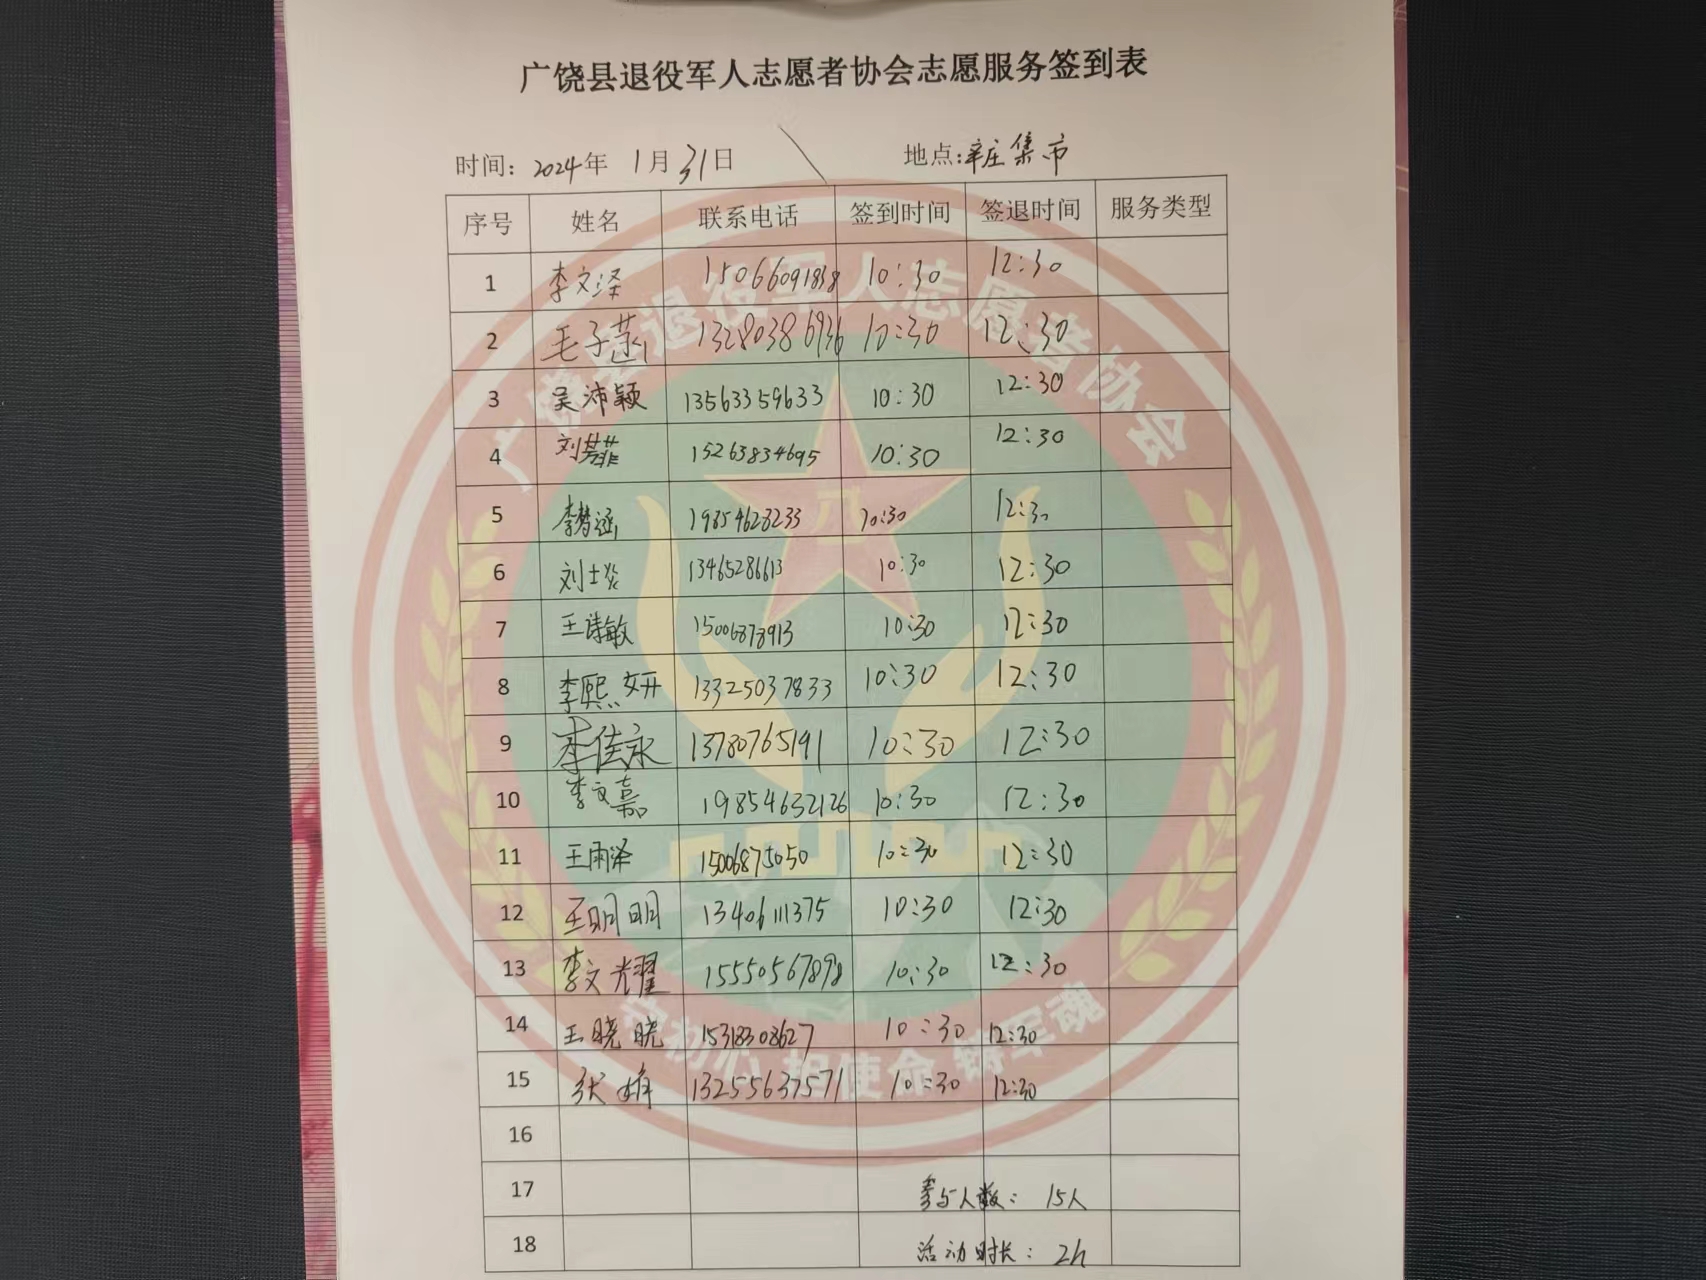 广饶县退役军人志愿者协会志愿服务签到表
时间: 2024年 1月31日 地点:辛庄集市
序号 姓名 联系电话 签到时间 签退时间 服务类型
1 李文泽 15066091838 10:30 12:30
2 毛子菡 13280386936 10:30 12:30
3 吴沛颖 13563359633 10:30 12:30
4 刘芸菲 15263834695 10:30 12:30
5 李梦涵 19854628233 10:30 12:30
6 刘士炎 13465286613 10:30 12:30
7 王诗敏 15006878913 10:30 12:30
8 李熙妍 13325037833 10:30 12:30
9 李佳永 13780765191 10:30 12:30
10 李文嘉 19854632126 10:30 12:30
11 王雨泽 15006875050 10:30 12:30
12 王明明 13406111375 10:30 12:30
13 李文耀 15550567898 10:30 12:30
14 王晓晓 15318308627 10:30 12:30
15 张娟 13255637571 10:30 12:30
16
17 参与人数: 15人
18 活动时长: 2h
广饶县退役军人志愿者协会
守初心 担使命 铸军魂